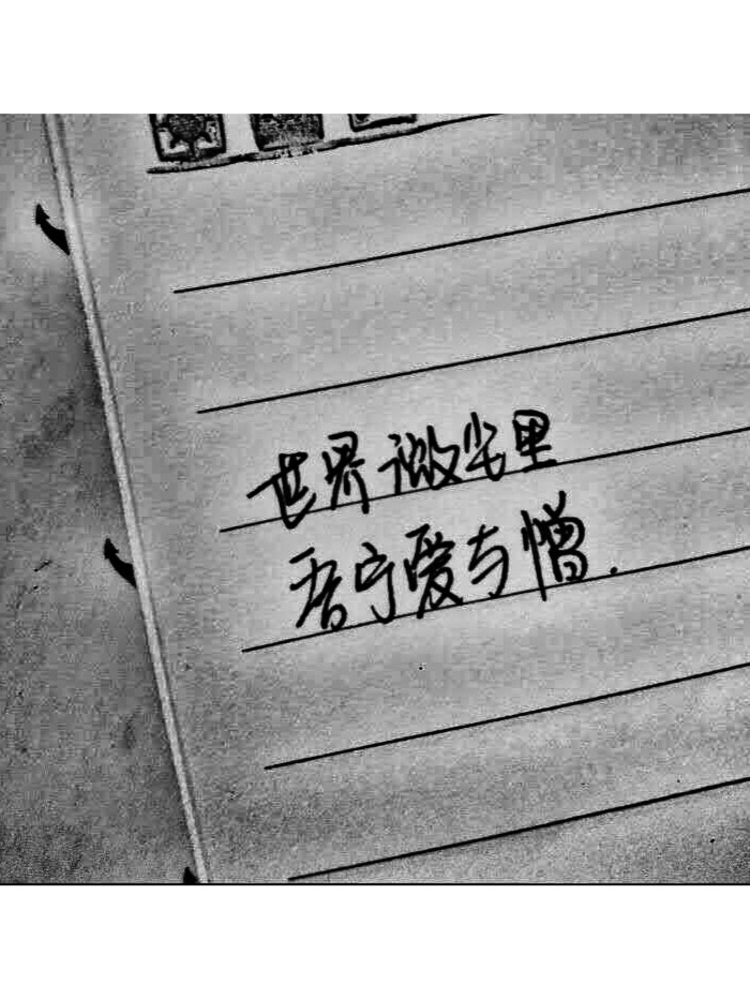 世界微尘里
吾宁爱与憎.